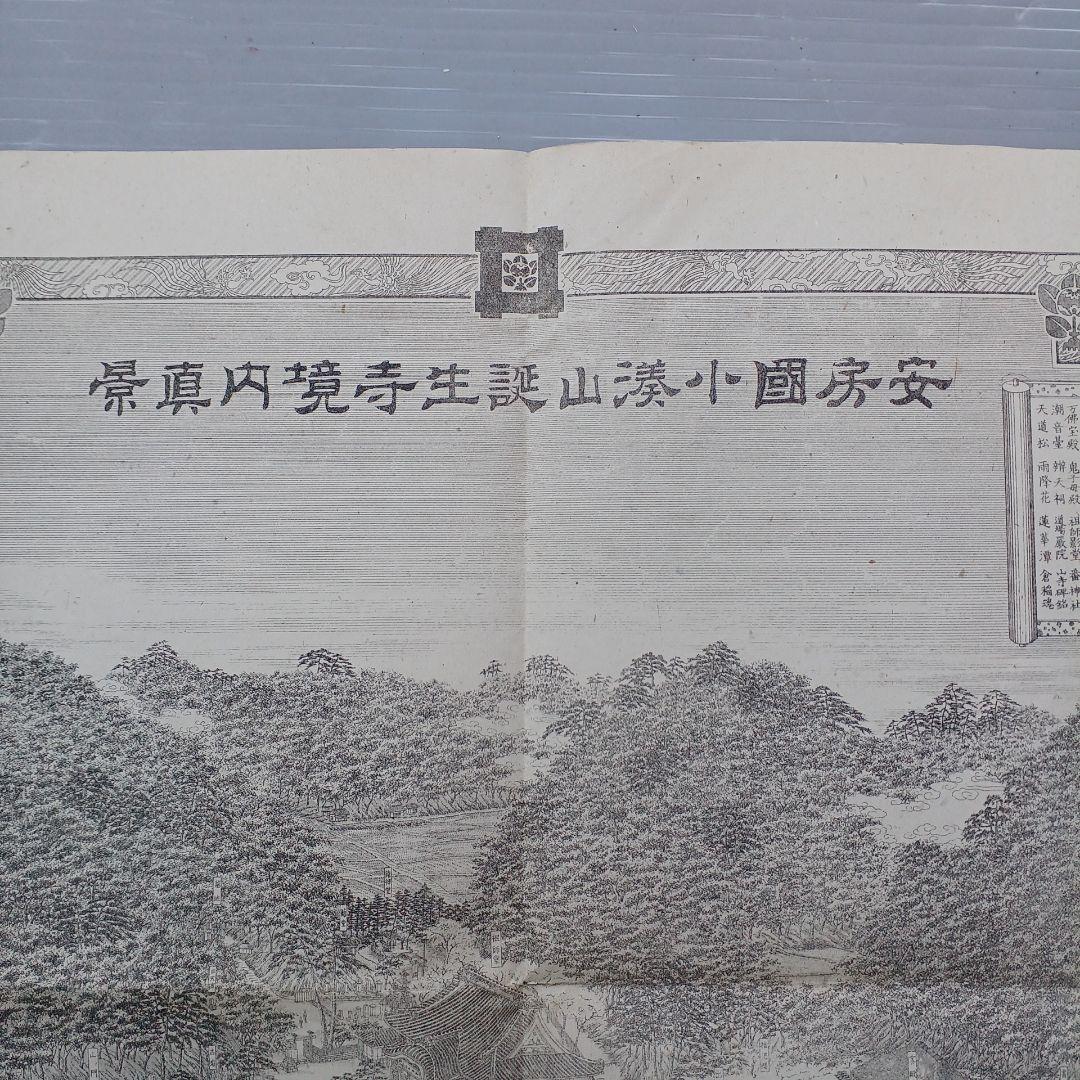 安房國小湊山誕生寺境内真景
万佛宝殿 鬼子母殿 祖師影堂 番神社
潮音臺 辨天祠 道場嚴院 山寺碑銘
天道松 雨降花 蓮華潭 倉稲魂